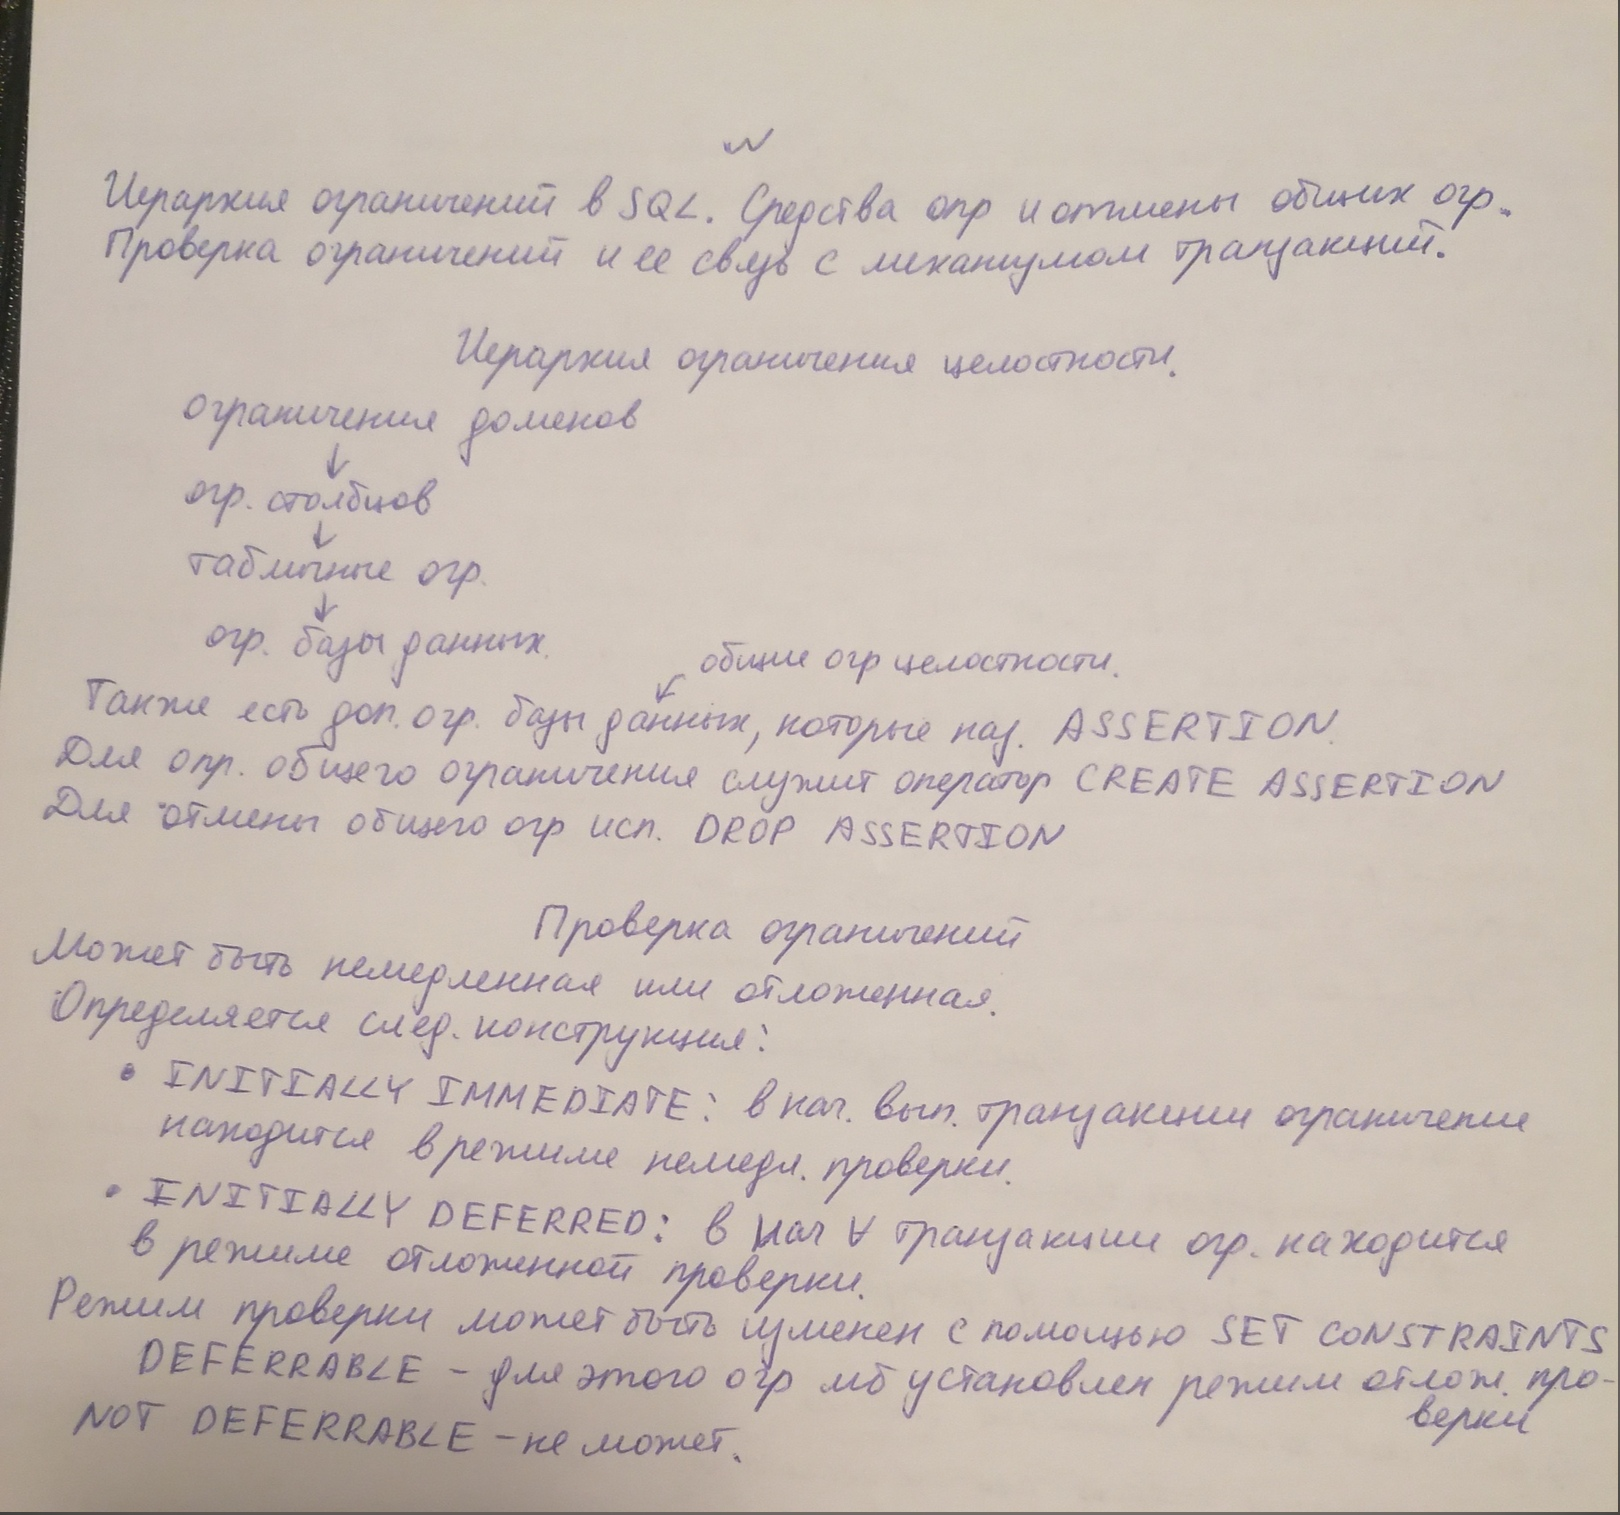 Иерархия ограничений в SQL. Средства опр и отмены общих огр.
Проверка ограничений и ее связь с механизмом транзакций.
Иерархия ограничения целостности.
ограничения доменов
↓
огр. столбцов
↓
табличные огр.
↓
огр. базы данных.
общие огр целостности.
↙
Также есть доп. огр. базы данных, которые наз. ASSERTION.
Для опр. общего ограничения служит оператор CREATE ASSERTION
Для отмены общего огр исп. DROP ASSERTION
Проверка ограничений
Может быть немедленная или отложенная.
Определяется след. конструкция:
• INITIALLY IMMEDIATE: в нач. вып. транзакции ограничение
находится в режиме немедл. проверки.
• INITIALLY DEFERRED: в нач ∀ транзакции огр. находится
в режиме отложенной проверки.
Режим проверки может быть изменен с помощью SET CONSTRAINTS
DEFERRABLE - для этого огр мб установлен режим отлож. про-
верки
NOT DEFERRABLE - не может.